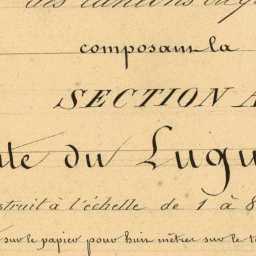 des cantons
composans la
SECTION A
du Lugu
struit à l'échelle de 1 à 8
sur le papier pour huit mètres sur le t